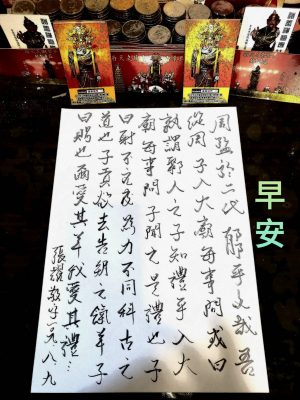 周監於二代郁乎文哉吾
從周子入大廟每事問或曰
孰謂鄹人之子知禮乎入大
廟每事問子聞之是禮也子
曰射不主皮為力不同科古之
道也子貢欲去告朔之餼羊子
曰賜也爾愛其羊我愛其禮…
張耀敬字一九八九
早安